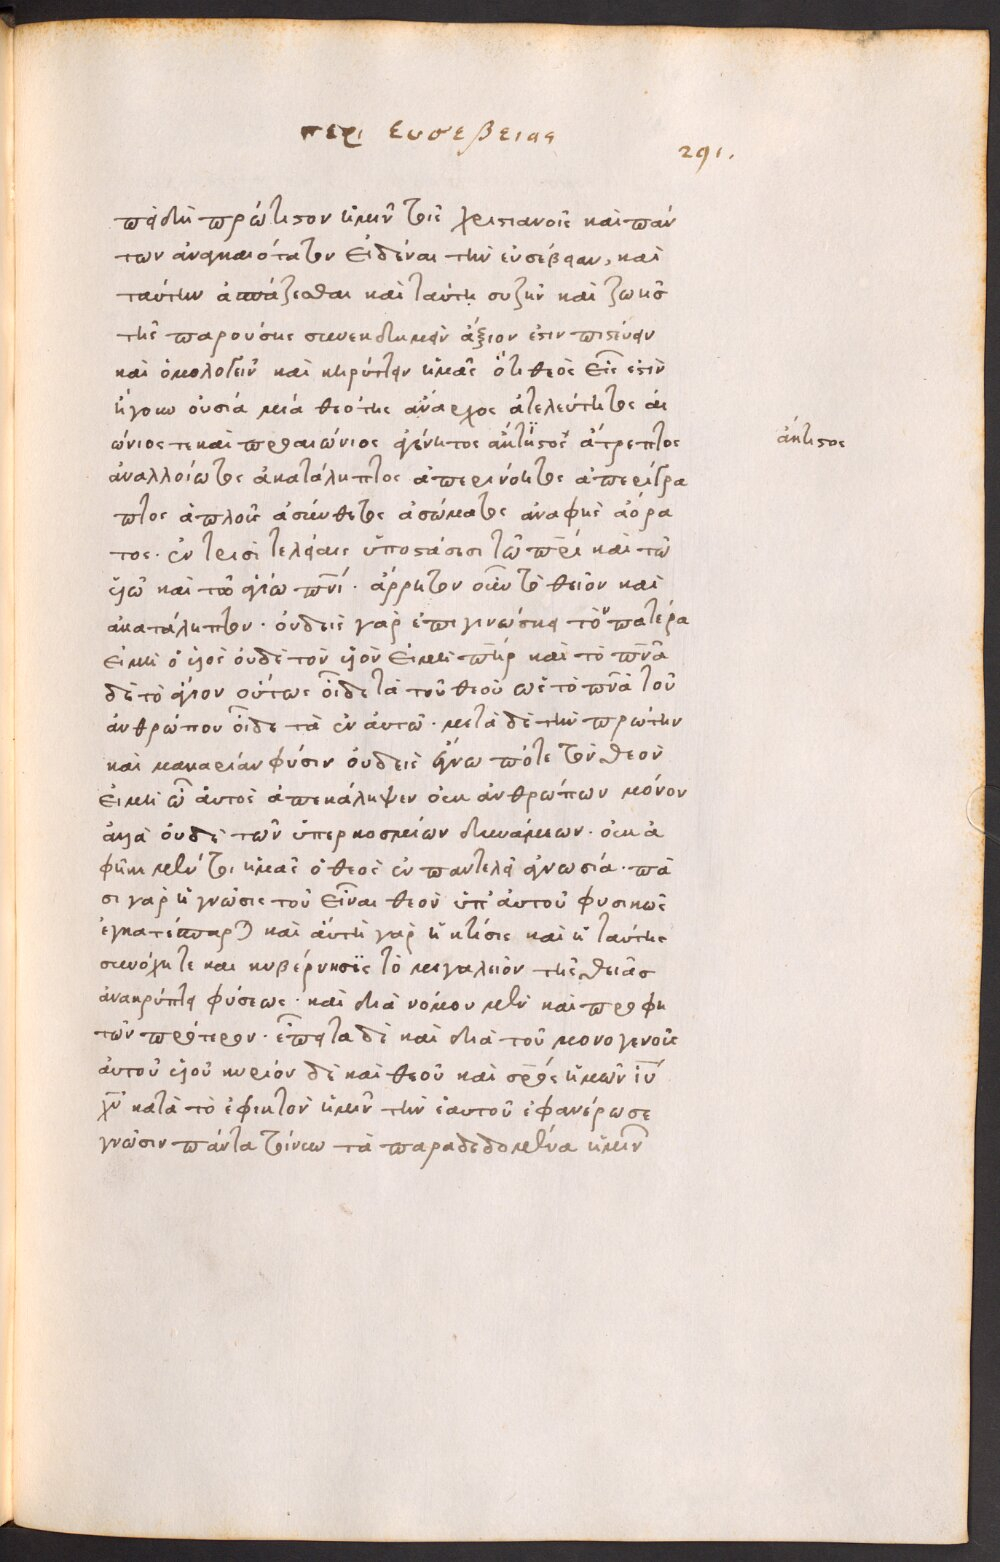 περι ευσεβειας
291.
ἐπειδὴ πρώτιστον ἡμῖν τοῖς χριστιανοῖς καὶ πάν
των ἀναγκαιότατον εἰδέναι τὴν εὐσέβειαν, καὶ
ταύτην ἀσπάζεσθαι καὶ ταύτῃ συζῆν καὶ ζωῆς
τῆς παρούσης συνεκδημεῖν ἄξιον ἐστιν πιστεύειν
καὶ ὁμολογεῖν καὶ κηρύττειν ἡμᾶς ὅτι θεὸς εἷς ἐστὶν
ἤγουν οὐσία μιά θεότης ἄναρχος ἀτελεύτητος αι
ώνιος τε καὶ προαιώνιος ἀγένητος ἄκτιστος ἄτρεπτος
ἄκτιστος
ἀναλλοίωτος ἀκατάληπτος ἀπερινόητος ἀπερίγρα
πτος ἁπλοῦς ἀσύνθετος ἀσώματος ἀναφὴς ἀόρα
τος. ἐν τρισὶ τελείαις ὑποστάσεσι τῶ πρὶ καὶ τῶ
υἱῶ καὶ τῶ ἁγίω πνι. ἄρρητον οὖν τὸ θεῖον καὶ
ἀκατάληπτον. οὐδεὶς γὰρ ἐπιγινώσκει τὸν πατέρα
εἰ μὴ ὁ υἱὸς οὐδὲ τὸν υἱὸν εἰ μὴ πὴρ καὶ τὸ πνα
δὲ τὸ ἅγιον οὕτως οἶδε τὰ τοῦ θεοῦ ὡς τὸ πνα τοῦ
ἀνθρώπου οἶδε τὰ ἐν αὐτῶ. μετὰ δὲ τὴν πρώτην
καὶ μακαρίαν φύσιν οὐδεὶς ἔγνω πότε τὸν θεὸν
εἰ μὴ ὧ αὐτὸς ἀπεκάλυψεν οὐκ ἀνθρώπων μόνον
ἀλλὰ οὐδὲ τῶν ὑπερκοσμίων δυνάμεων. οὐκ ἀ
φῆκε μέν τοι ἡμᾶς ὁ θεὸς ἐν παντελεῖ ἀγνωσία. πᾶ
σι γὰρ ἡ γνῶσις τοῦ εἶναι θεὸν ὑπ' αὐτοῦ φυσικῶς
ἐγκατέσπαρται καὶ αὐτὴ γὰρ ἡ κτίσις καὶ ἡ ταύτης
συνοχή τε και κυβέρνησις τὸ μεγαλεῖον τῆς θείας
ἀνακηρύττει φύσεως. καὶ διὰ νόμου μὲν καὶ προφη
τῶν πρότερον. ἔπειτα δὲ καὶ διὰ τοῦ μονογενοῦς
αὐτοῦ υἱοῦ κυρίου δὲ καὶ θεοῦ καὶ σρος ἡμῶν ιυ
χυ κατὰ τὸ ἐφικτὸν ἡμῖν τὴν ἑαυτοῦ ἐφανέρωσε
γνῶσιν πάντα τοίνυν τὰ παραδεδομένα ἡμῖν